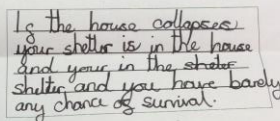 If the house collapses
your shelter is in the house
and your in the shater
shelter and you have barely
any chance of survival.